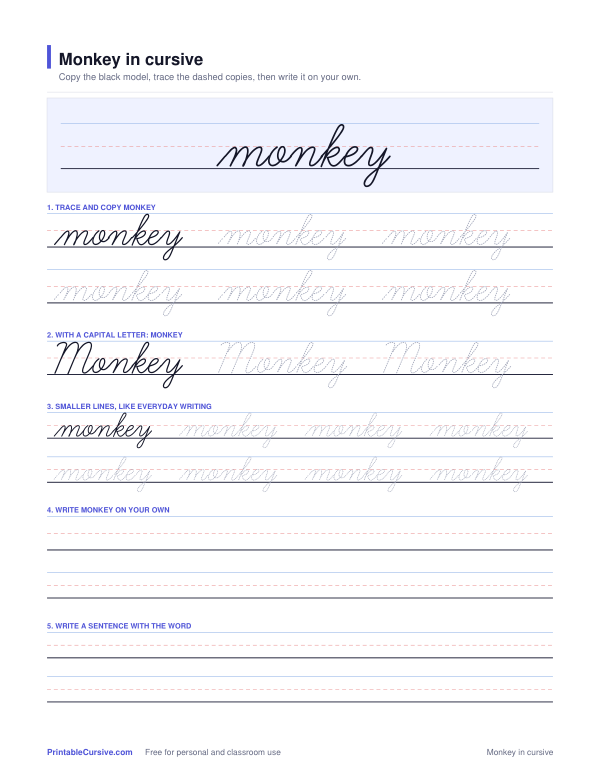 Monkey in cursive
Copy the black model, trace the dashed copies, then write it on your own.
monkey
1. TRACE AND COPY MONKEY
monkey monkey monkey
monkey monkey monkey
2. WITH A CAPITAL LETTER: MONKEY
Monkey Monkey Monkey
3. SMALLER LINES, LIKE EVERYDAY WRITING
monkey monkey monkey monkey
monkey monkey monkey monkey
4. WRITE MONKEY ON YOUR OWN
5. WRITE A SENTENCE WITH THE WORD
PrintableCursive.com Free for personal and classroom use Monkey in cursive